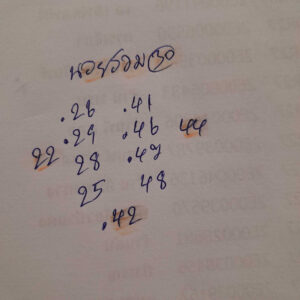 หวยรวม 30
.26 .41
.29 .46 44
22 28 .47
25 48
.42